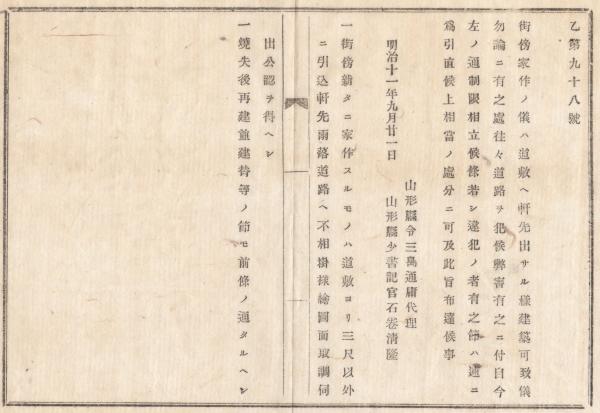 乙第九十八號
街傍家作ノ儀ハ道敷ヘ軒先出サル樣建築可致儀
勿論ニ有之處往々道路ヲ犯候弊害有之ニ付自今
左ノ通制限相立候條若シ違犯ノ者有之節ハ速ニ
爲引直候上相當ノ處分ニ可及此旨布達候事
明治十一年九月廿一日
山形縣令三島通庸代理
山形縣少書記官石卷淸隆
一街傍新タニ家作スルモノハ道敷ヨリ三尺以外
ニ引込軒先雨落道路ヘ不相掛樣繪圖面取調伺
出公認ヲ得ヘシ
一燒失後再建並建替等ノ節モ前條ノ通タルヘシ